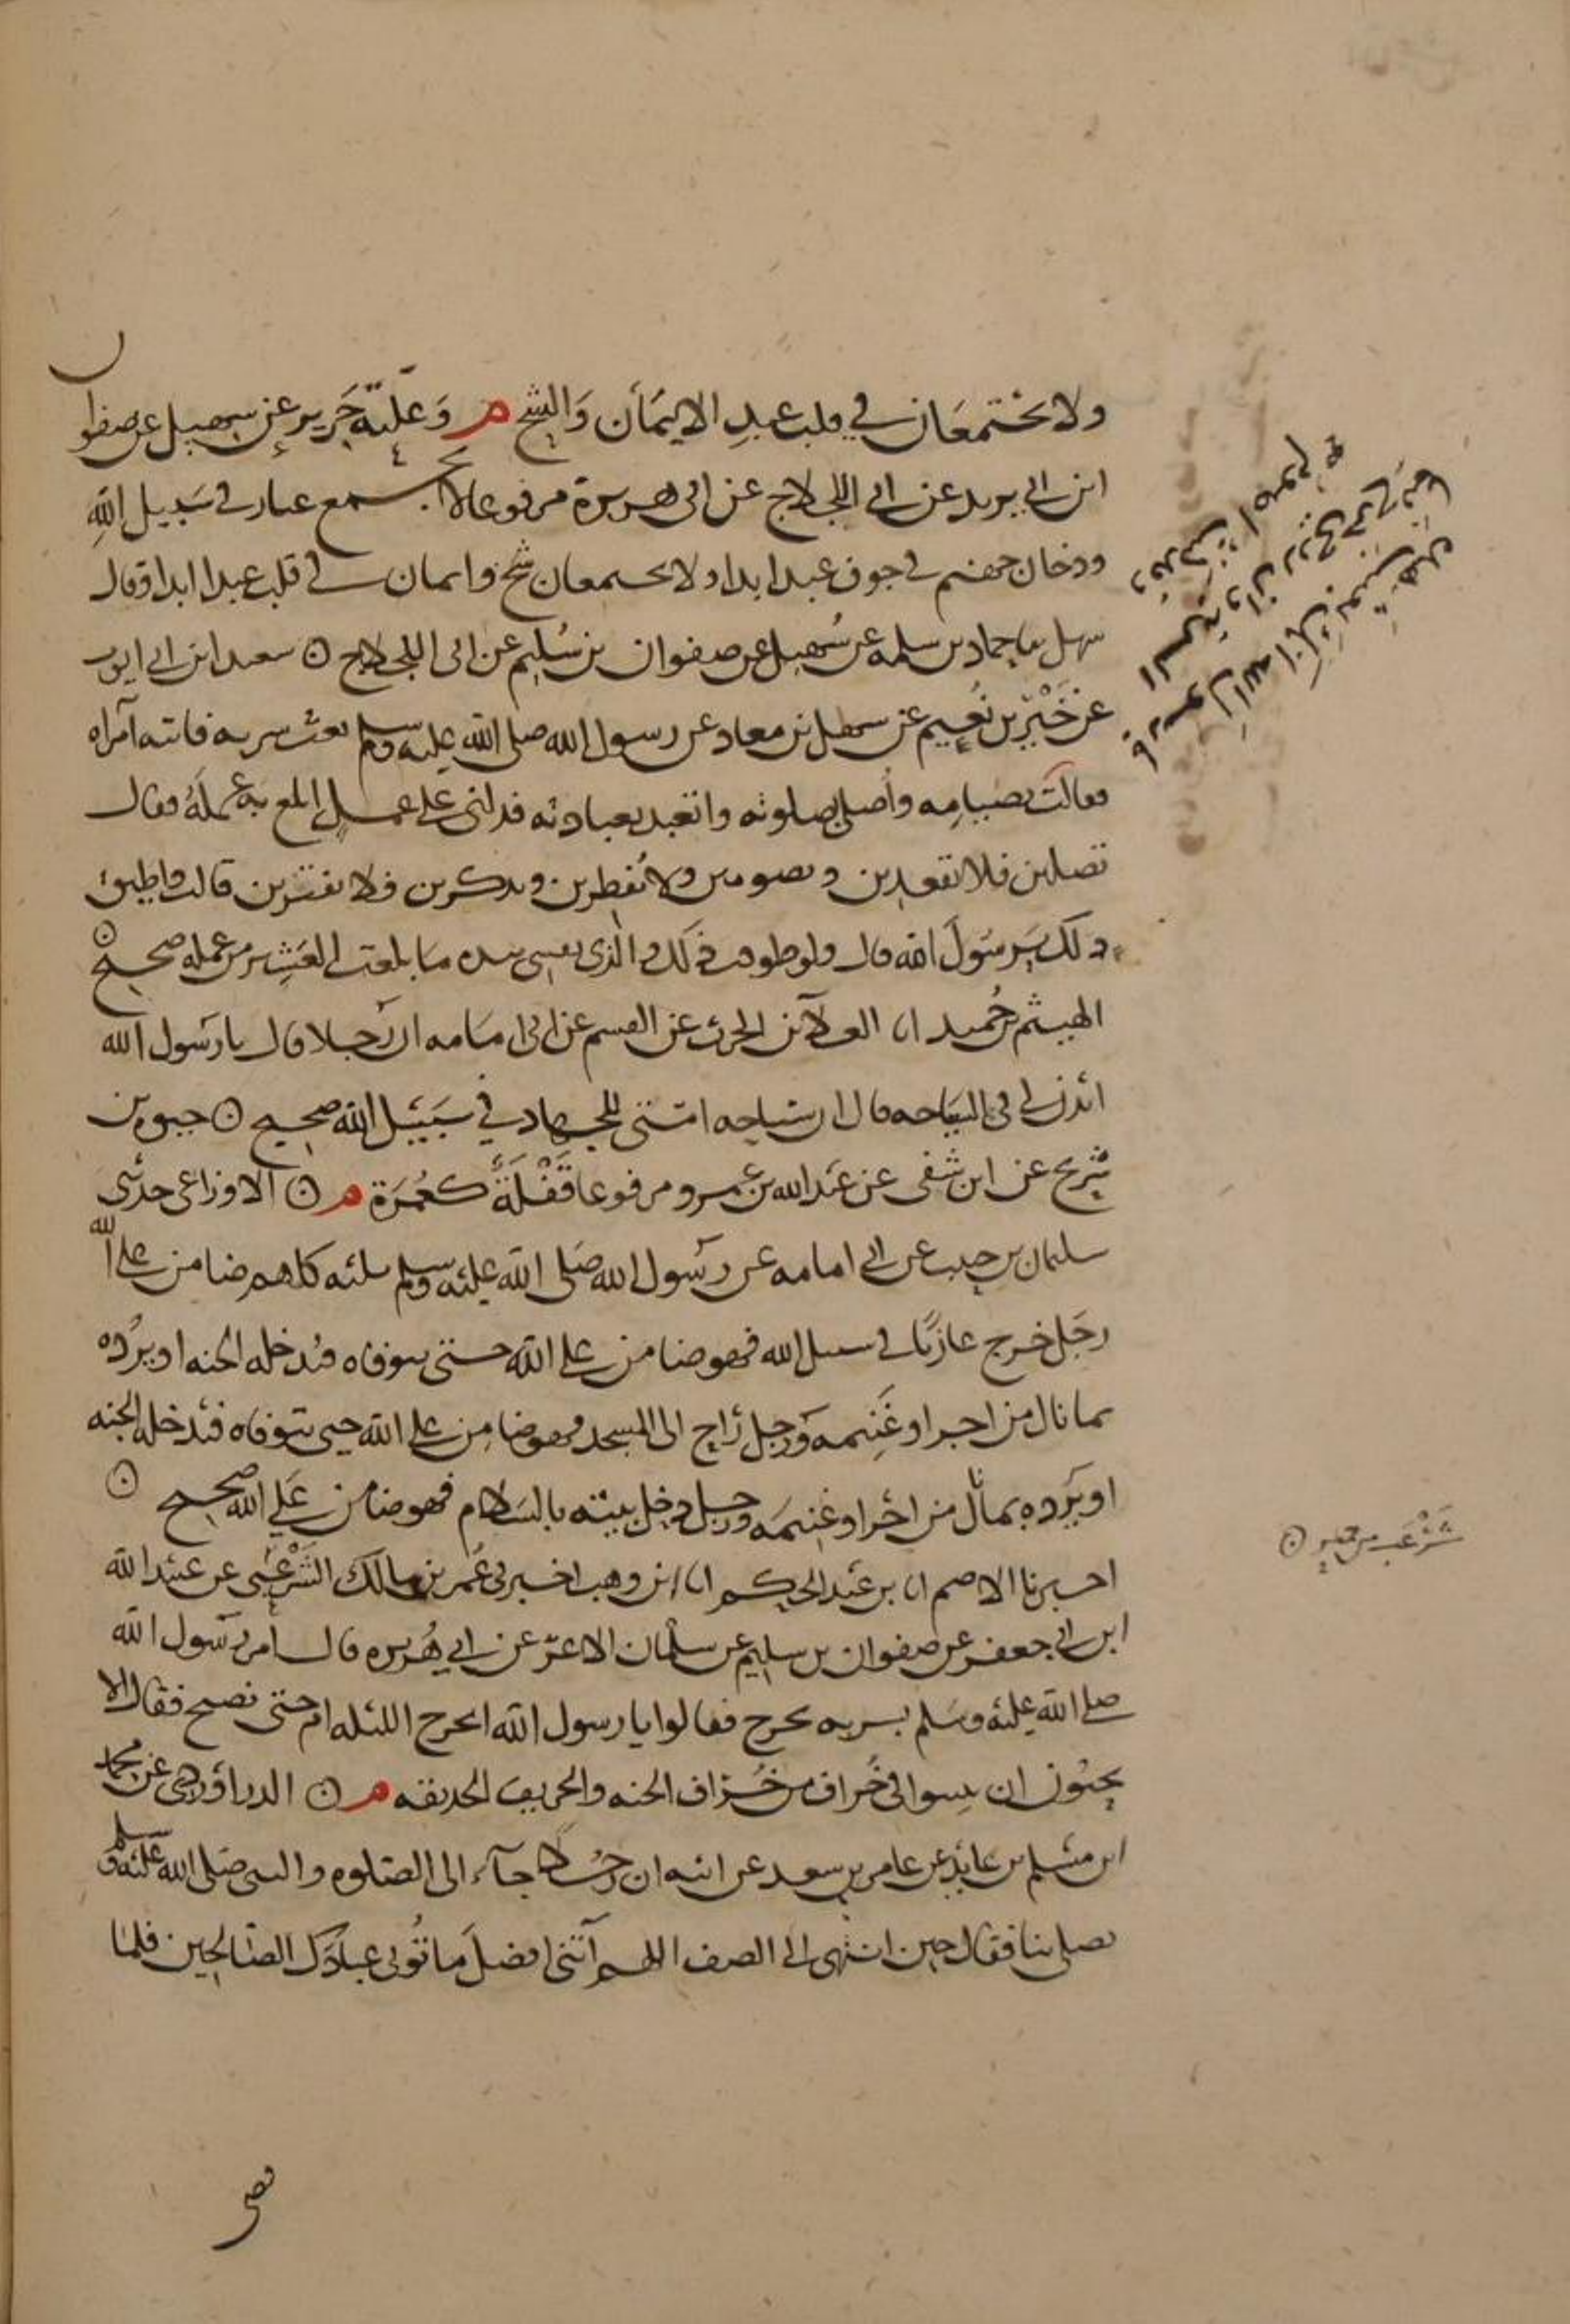 ولا يجتمعان في قلب عبد الايمان والشح م وعلته جرير عن سهيل عن صفوان
ابن ابي يزيد عن ابي اللجلاج عن ابي هريرة مرفوعا لا يجتمع غبار في سبيل الله
ودخان جهنم في جوف عبد ابدا ولا يجتمعان شح وايمان في قلب عبد ابدا وقال
سهل نا حماد بن سلمة عن سهيل عن صفوان بن سليم عن ابي اللجلاج ۞ سعيد ابن ابي ايوب
عن خير بن نعيم عن سهل بن معاذ عن رسول الله صلى الله عليه وسلم بعث سرية فاتته امراه
فقالت بصيامه واصلي بصلوته واتعبد بعبادته فدلني على عمل ابلغ به عمله فقال
تصلين فلا تقعدين وتصومين ولا تفطرين وتذكرين فلا تفترين قالت واطيق
ذلك يرسول الله قال ولو طوقت ذلك والذي نفسي بيده ما بلغت العشر من عمله صحيح ۞
الهيثم بن حميد انا العلا بن الحرث عن القسم عن ابي امامه ان رجلا قال يا رسول الله
ائذن لي في السياحه قال ان سياحه امتي للجهاد في سبيل الله صحيح ۞ حيوه بن
شريح عن ابن شفي عن عبد الله بن عمرو مرفوعا قفلة كعمرة م ۞ الاوزاعي حدثني
سليمان بن حبيب عن ابي امامه عن رسول الله صلى الله عليه وسلم ثلثه كلهم ضامن على الله
رجل خرج غازيا في سبيل الله فهو ضامن على الله حتى يتوفاه فيدخله الجنه او يرده
بما نال من اجر او غنيمه ورجل راح الى المسجد فهو ضامن على الله حتى يتوفاه فيدخله الجنه
او يرده بما نال من اجر او غنيمه ورجل دخل بيته بالسلام فهو ضامن على الله صحيح ۞
اخبرنا الاصم انا بن عبد الحكم انا ابن وهب اخبرني عمر بن مالك الشرعبي عن عبيد الله
ابن ابي جعفر عن صفوان بن سليم عن سلمان الاغر عن ابي هريره قال امر رسول الله
صلى الله عليه وسلم بسريه تخرج فقالوا يا رسول الله انخرج الليله ام حتى نصبح فقال الا
تحبون ان تبيتوا في خراف من خراف الجنه والخريف الحديقه م ۞ الدراوردي عن محمد
ابن مسلم بن عايذ عن عامر بن سعد عن ابيه ان رجلا جاء الى الصلوه والنبي صلى الله عليه وسلم
يصلي بنا فقال حين انتهى الى الصف اللهم آتني افضل ما تؤتي عبادك الصالحين فلما
شرعب من حمير ۞
قضى